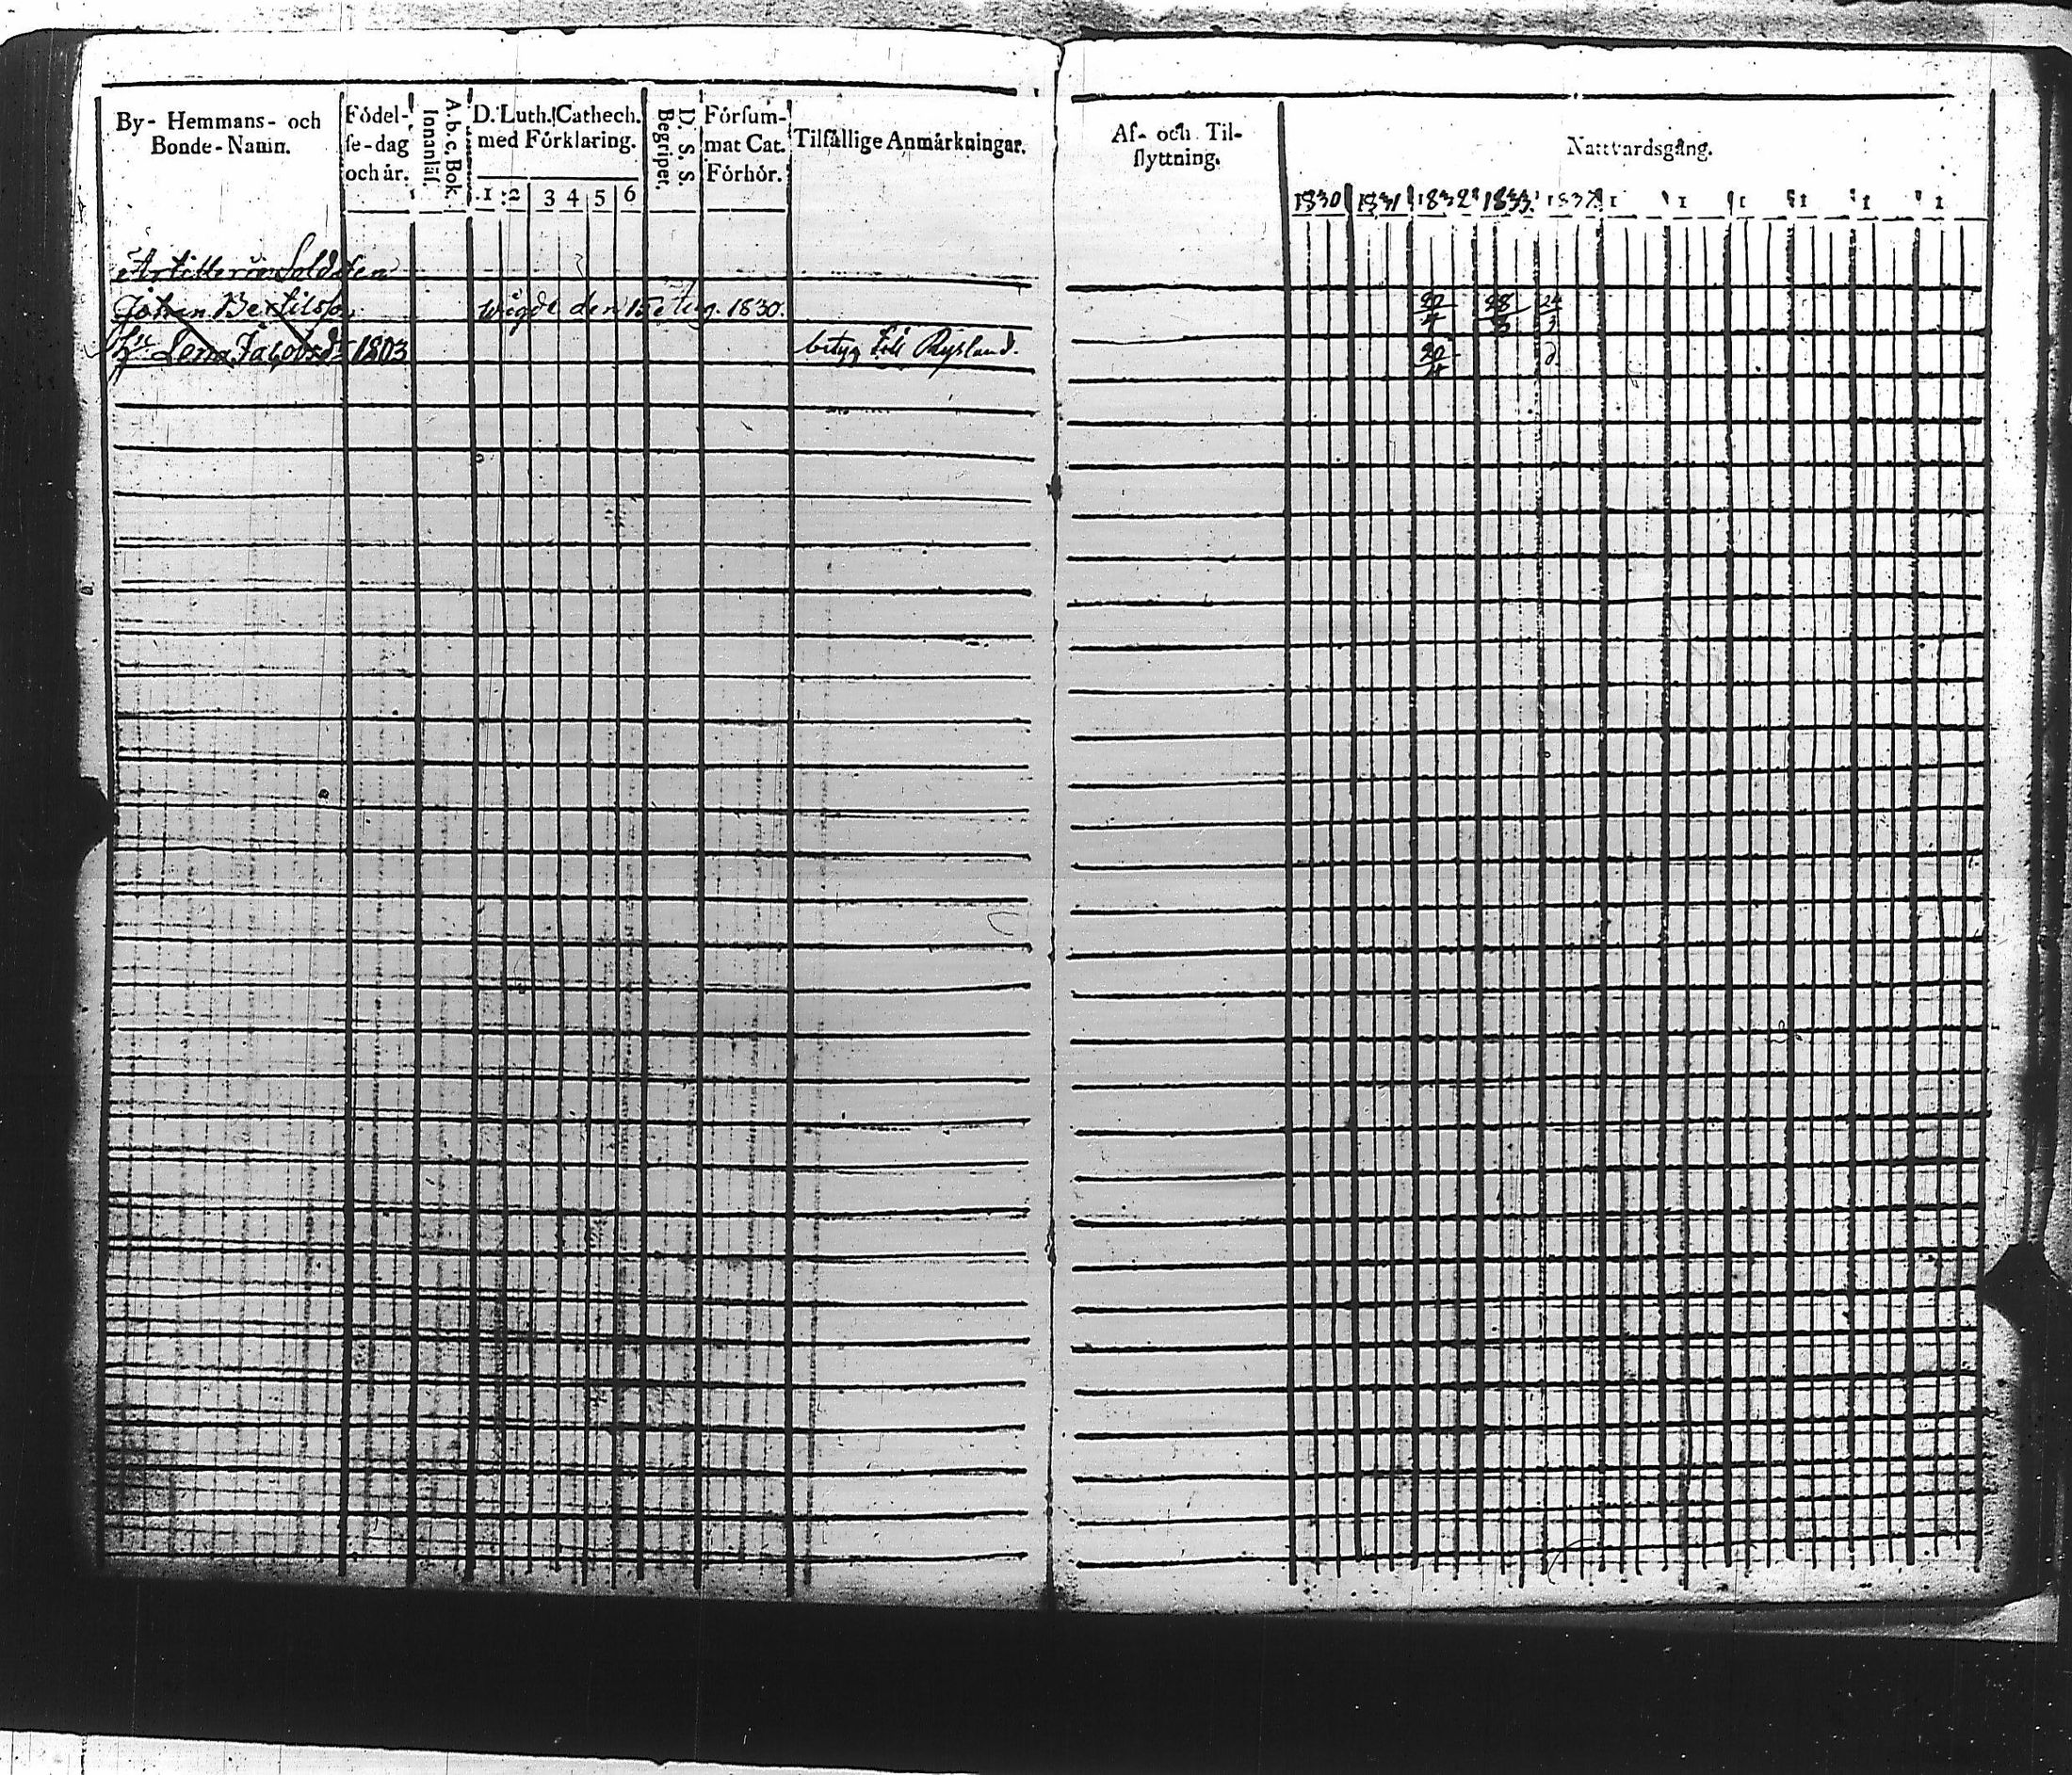 By- Hemmans- och
Bonde-Namn.
Födel-
se-dag
och år.
Innanläs.
A.b.c.Bok.
D. Luth. Cathech.
med Förklaring.
1 2 3 4 5 6
D. S. S.
Begripet.
Försum-
mat Cat.
Förhör.
Tilfällige Anmärkningar.
Artilleri Soldaten
Johan Bertilsson wigde den 15 Aug. 1830.
Lena Jacobsdr 1803 betyg till Ryssland.
Af- och Til-
flyttning.
Nattvardsgång.
1830 1831 1832 1833 1 1 1 1 1 1
20/4 24/3
20/4